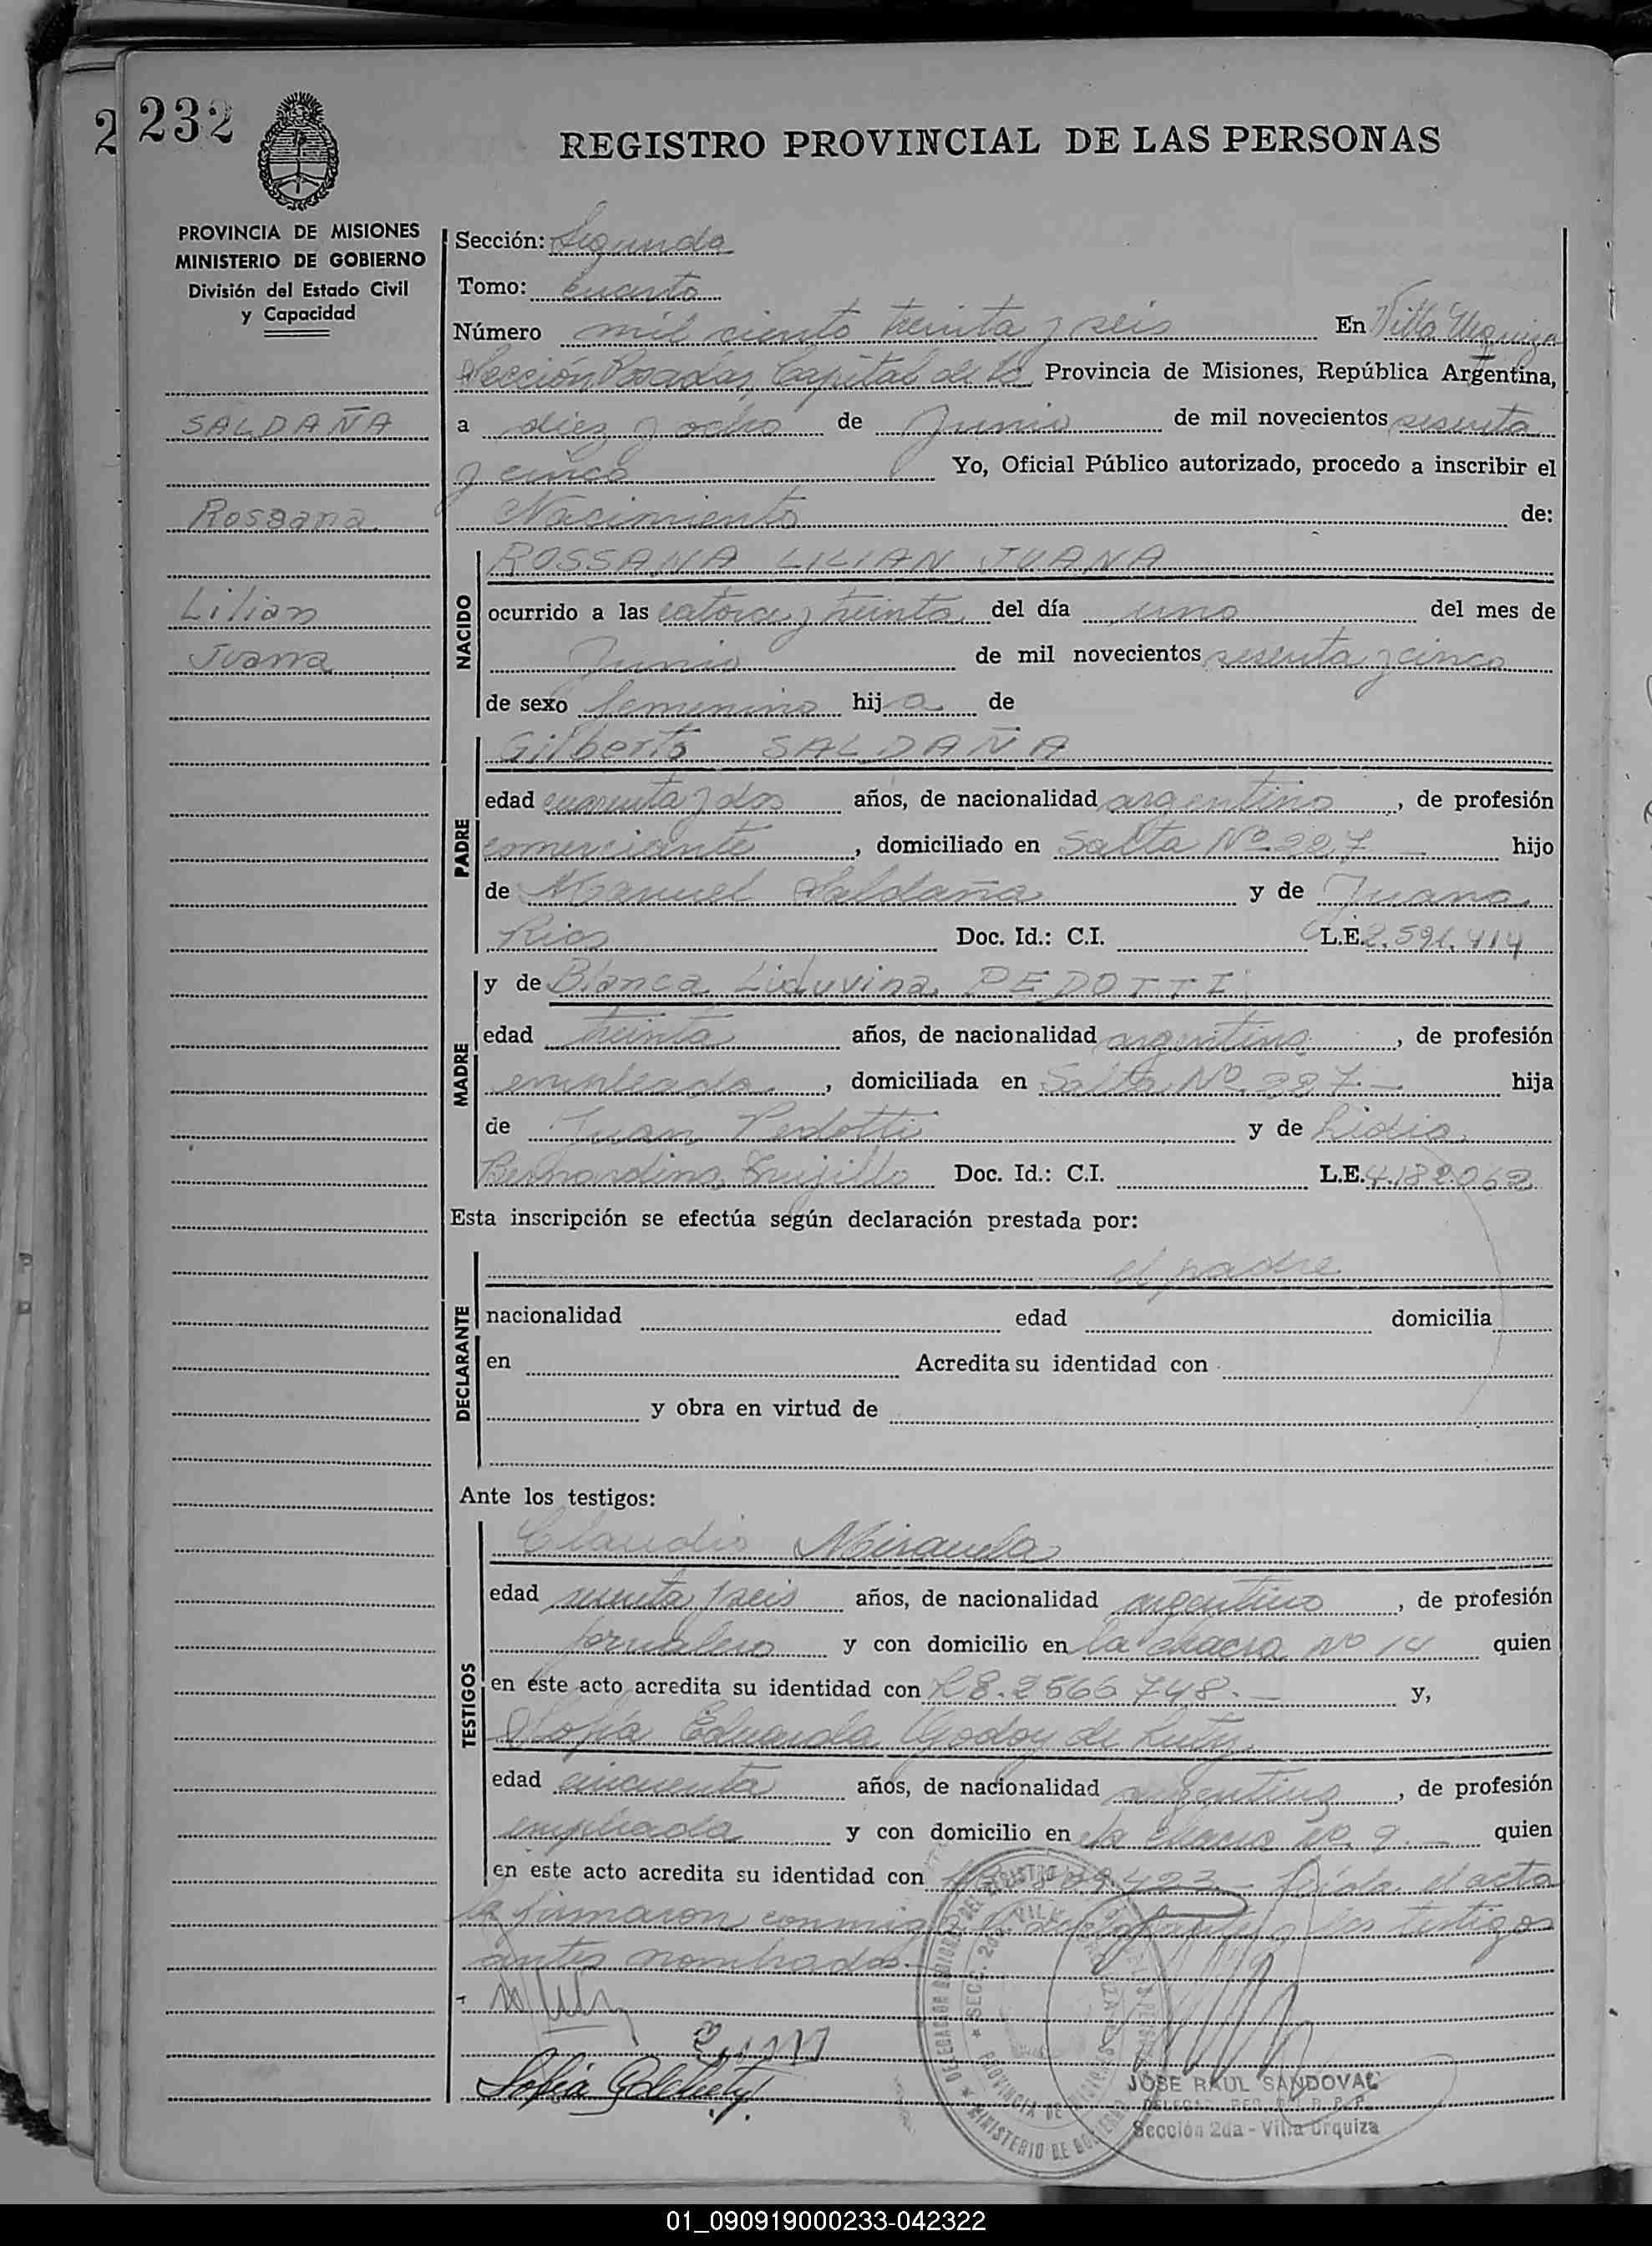 232
REGISTRO PROVINCIAL DE LAS PERSONAS
PROVINCIA DE MISIONES
MINISTERIO DE GOBIERNO
División del Estado Civil
y Capacidad
SALDAÑA
Rossana
Lilian
Juana
Sección: Segunda
Tomo: Cuarto
Número mil ciento treinta y seis En Villa Urquiza
Sección Posadas, Capital de la Provincia de Misiones, República Argentina,
a diez y ocho de Junio de mil novecientos sesenta
y cinco Yo, Oficial Público autorizado, procedo a inscribir el
Nacimiento de:
NACIDO
ROSSANA LILIAN JUANA
ocurrido a las catorce y treinta del día uno del mes de
Junio de mil novecientos sesenta y cinco
de sexo femenino hija de
PADRE
Gilberto SALDAÑA
edad cuarenta y dos años, de nacionalidad argentino, de profesión
comerciante, domiciliado en Salta Nº 227 — hijo
de Manuel Saldaña y de Juana
Rios Doc. Id.: C.I. L.E. 2.591.414
MADRE
y de Blanca Liduvina PEDOTTI
edad treinta años, de nacionalidad argentina, de profesión
empleada, domiciliada en Salta Nº 227 — hija
de Juan Pedotti y de Lidia
Bernardina Trujillo Doc. Id.: C.I. L.E. 4.182.062
Esta inscripción se efectúa según declaración prestada por:
DECLARANTE
el padre
nacionalidad edad domicilia
en Acredita su identidad con
y obra en virtud de
Ante los testigos:
TESTIGOS
Claudio Miranda
edad años, de nacionalidad argentino, de profesión
jornalero y con domicilio en la chacra Nº 14 quien
en este acto acredita su identidad con 2566748. — y,
Sofía Eduarda Godoy de
edad cincuenta años, de nacionalidad argentina, de profesión
empleada y con domicilio en la chacra Nº 9. — quien
en este acto acredita su identidad con 423 — leída el acta
la firmaron conmigo los testigos
antes nombrados.
JOSE RAUL SANDOVAL
Sección 2da - Villa Urquiza
01_090919000233-042322